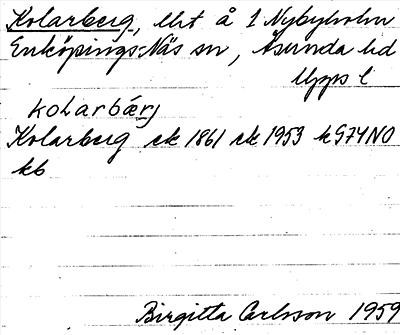 Kolarberg, lht å 1 Nybyholm
Enköpings-Näs sn, Åsunda hd
Upps l
kolarbärj
Kolarberg ek 1861 ek 1953 k G74NO
kb
Birgitta Carlsson 1959